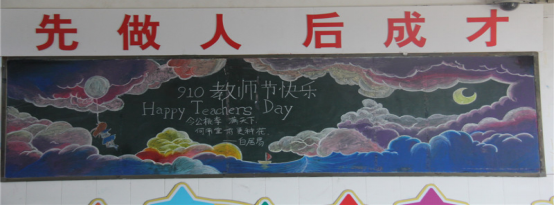 先做人 后成才
910 教师节快乐
Happy Teachers Day
令公桃李 满天下,
何用堂前更种花
白居易